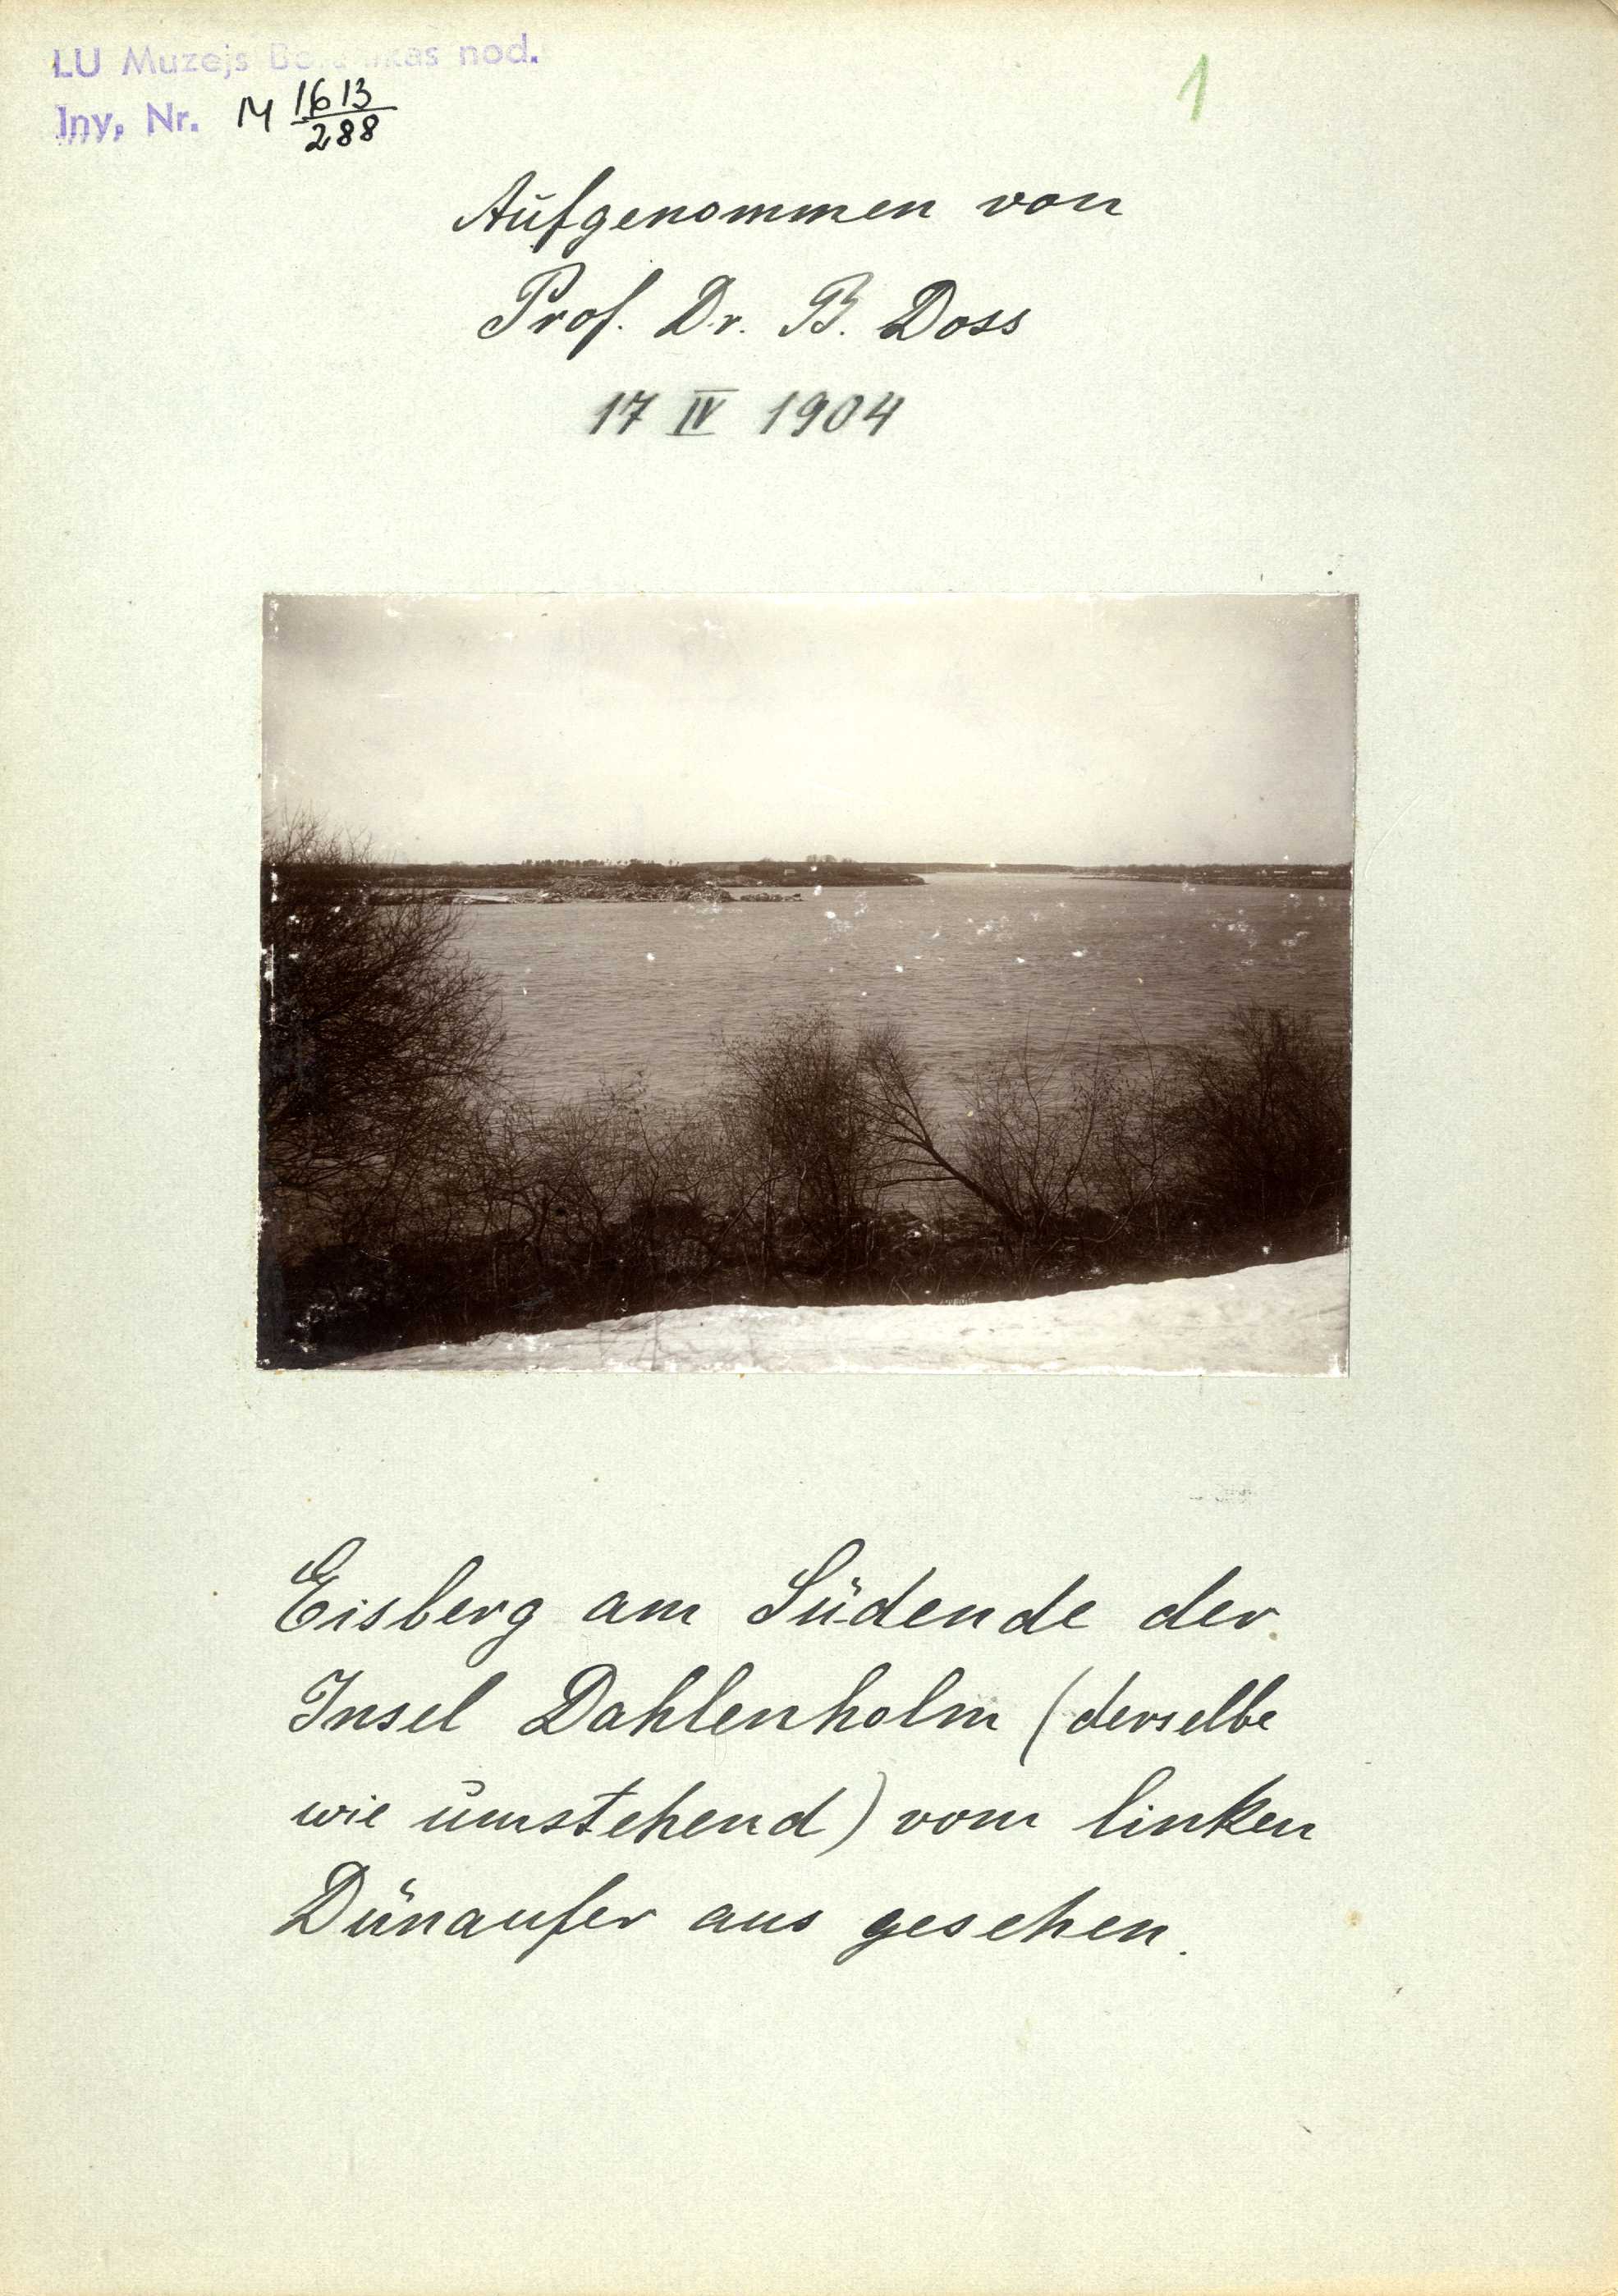 LU Muzejs nod.
Inv. Nr. M 1613/288
1
Aufgenommen von
Prof. Dr. B. Doss
17 IV 1904
Eisberg am Südende der
Insel Dahlenholm (derselbe
wie umstehend) vom linken
Dünaufer aus gesehen.